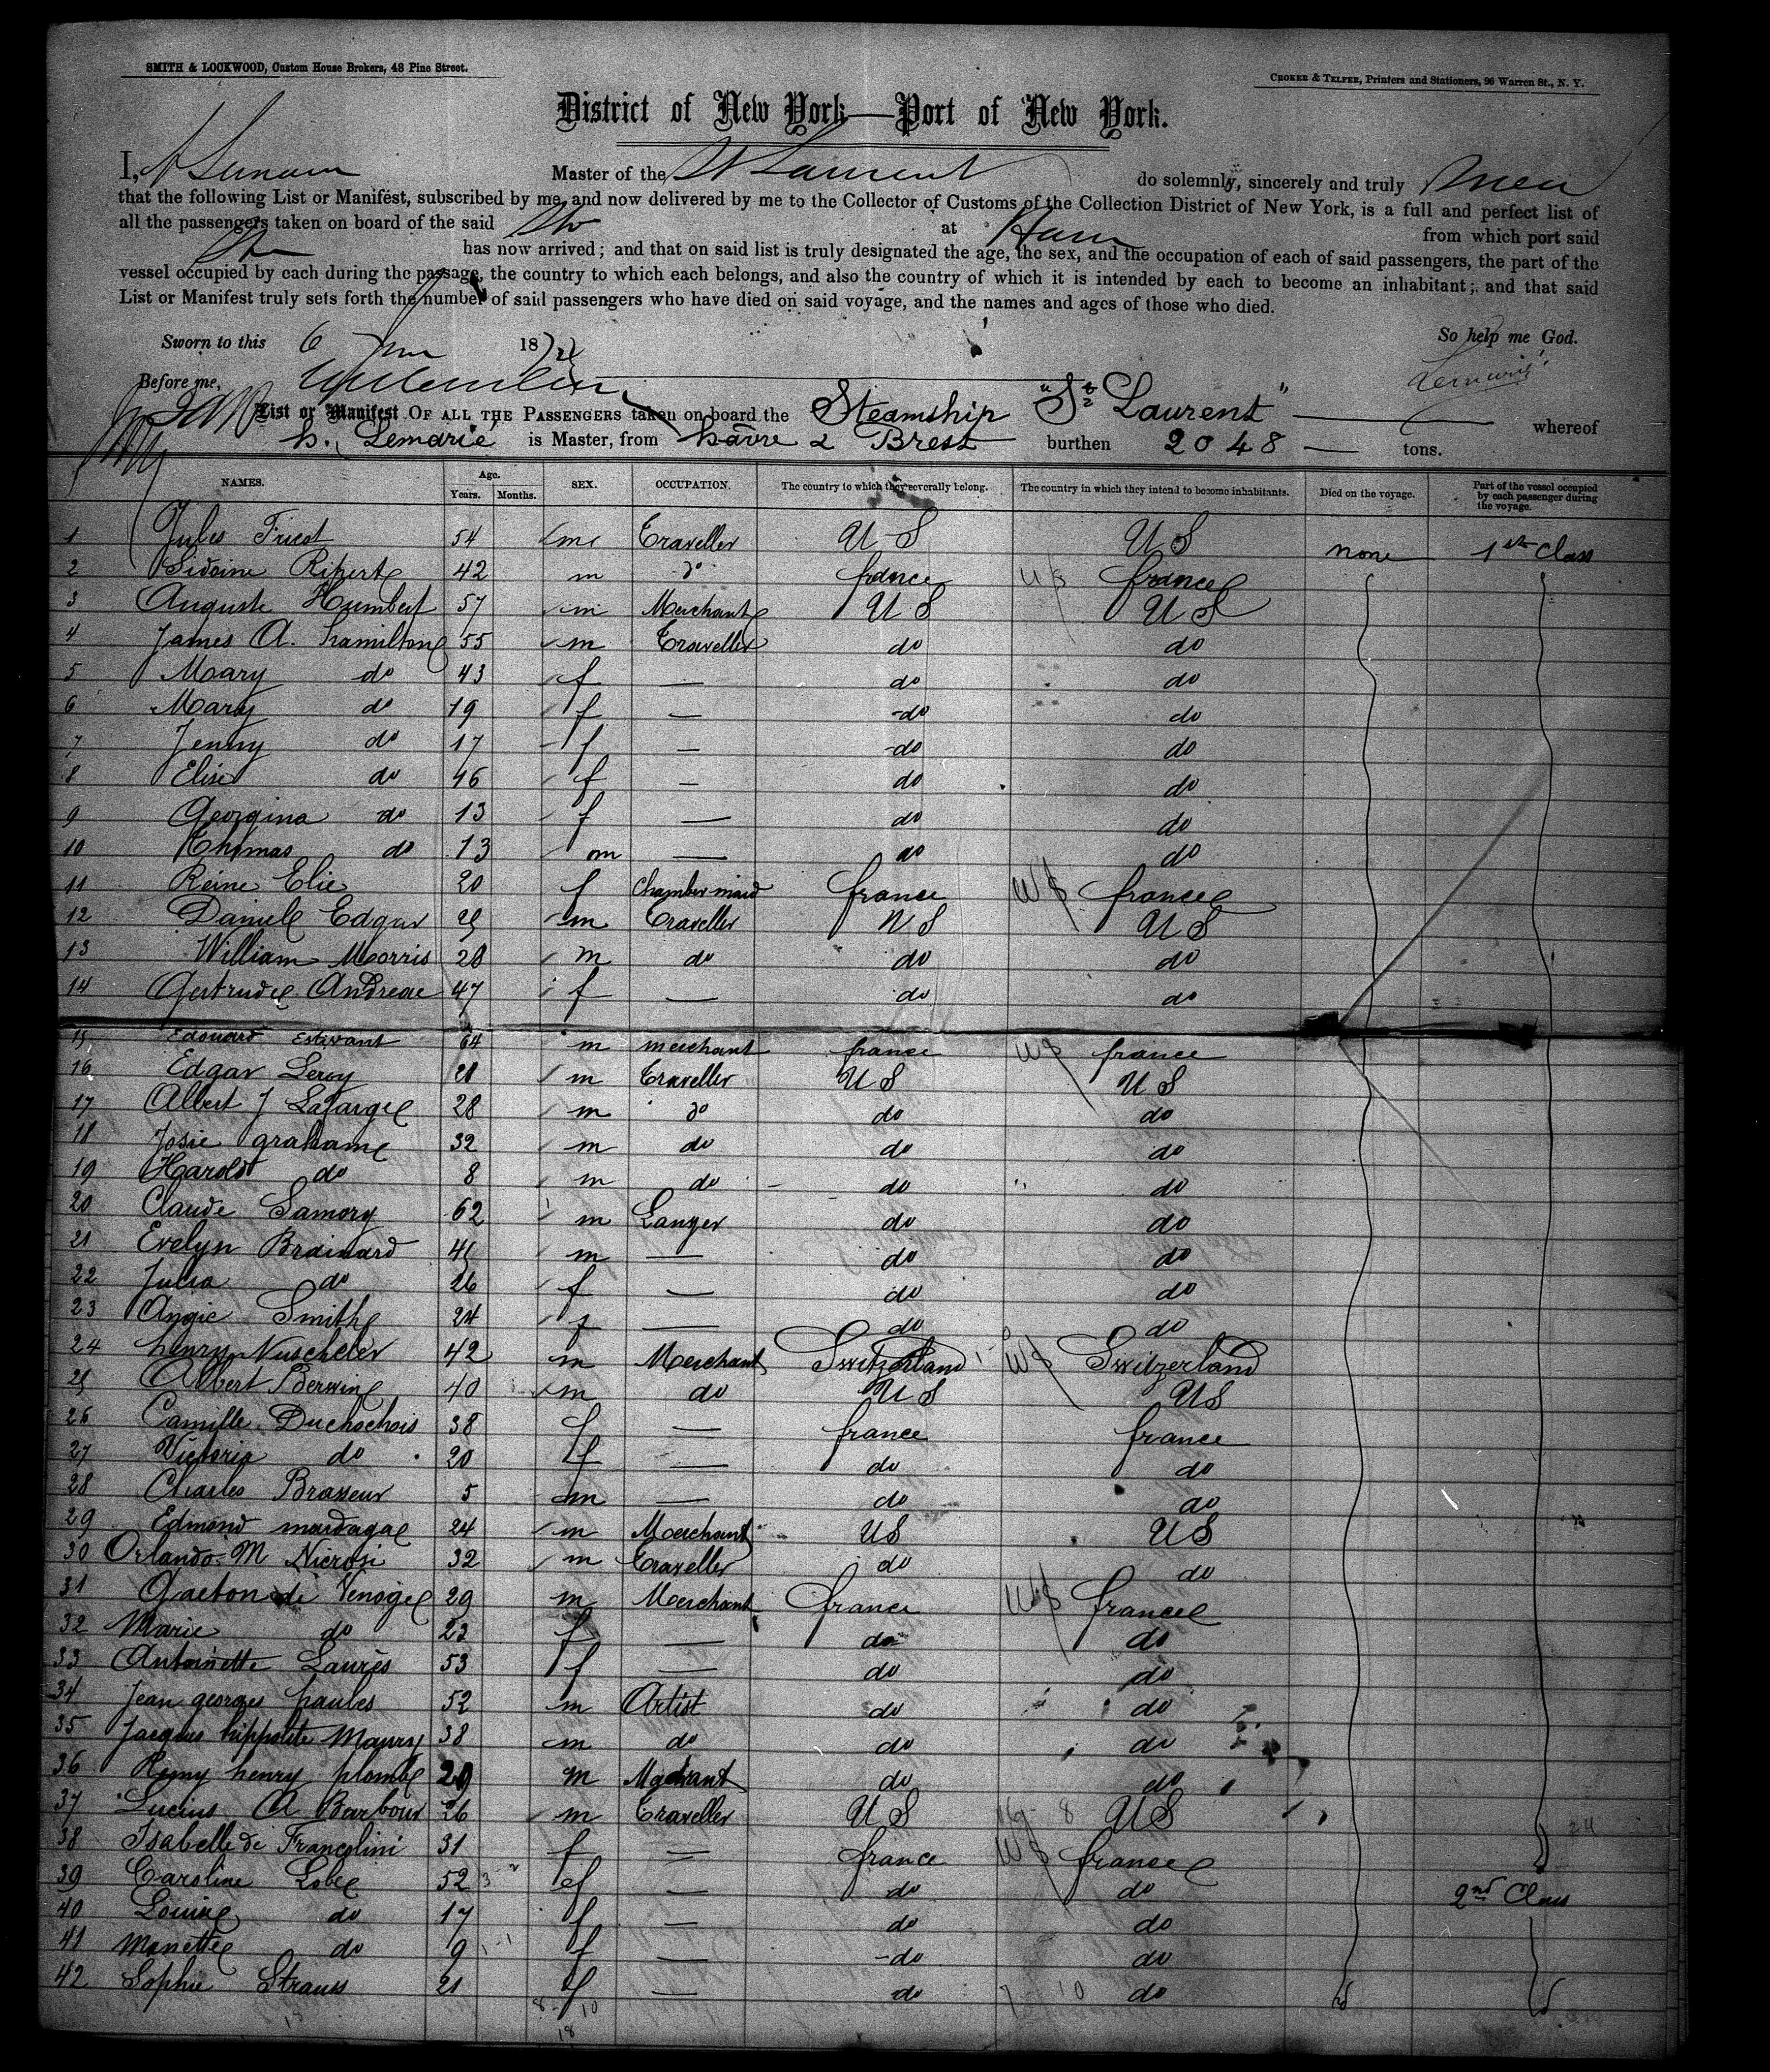 SMITH & LOCKWOOD, Custom House Brokers, 48 Pine Street.
CROKER & TELFER, Printers and Stationers, 96 Warren St., N. Y.
District of New York—Port of New York.
I, Master of the St Laurent do solemnly, sincerely and truly swear
that the following List or Manifest, subscribed by me, and now delivered by me to the Collector of Customs of the Collection District of New York, is a full and perfect list of
all the passengers taken on board of the said Str at Havre from which port said
Str has now arrived; and that on said list is truly designated the age, the sex, and the occupation of each of said passengers, the part of the
vessel occupied by each during the passage, the country to which each belongs, and also the country of which it is intended by each to become an inhabitant; and that said
List or Manifest truly sets forth the number of said passengers who have died on said voyage, and the names and ages of those who died.
Sworn to this 6 18 So help me God.
Before me,
List or Manifest OF ALL THE PASSENGERS taken on board the Steamship "St Laurent" whereof
h. Lemarie is Master, from havre & Brest burthen 2048 tons.
NAMES. Age. Years. Months. SEX. OCCUPATION. The country to which they severally belong. The country in which they intend to become inhabitants. Died on the voyage. Part of the vessel occupied by each passenger during the voyage.
1 Jules Fricot 54 m Traveller U S U S none 1st Class
2 Sidoine Ripert 42 m do france U S france
3 Auguste Humbert 57 m Merchant U S U S
4 James A. hamilton 55 m Traveller do do
5 Mary do 43 f — do do
6 Mary do 19 f — do do
7 Jenny do 17 f — do do
8 Elise do 16 f — do do
9 Georgina do 13 f — do do
10 Thomas do 13 m — do do
11 Reine Elie 20 f Chambermaid france U S france
12 Daniel Edgar 25 m Traveller U S U S
13 William Morris 28 m do do do
14 Gertrude Andreae 47 f — do do
15 Edouard Estivant 64 m merchant france U S france
16 Edgar Leroy 28 m Traveller U S U S
17 Albert J Lafarge 28 m do do do
18 Josie graham 32 m do do do
19 Harold do 8 m do do do
20 Claude Samory 62 m Lawyer do do
21 Evelyn Brainard 45 m — do do
22 Julia do 26 f — do do
23 Angie Smith 24 f — do do
24 henry Nuscheler 42 m Merchant Switzerland U S Switzerland
25 Albert Berwin 40 m do U S U S
26 Camille Duchochois 38 f — france france
27 Victoria do 20 f — do do
28 Charles Brasseur 5 m — do do
29 Edmond mardaga 24 m Merchant U S U S
30 Orlando M Nicrosi 32 m Traveller do do
31 Gaeton de Venoge 29 m Merchant france U S france
32 Marie do 23 f — do do
33 Antoinette Laurès 53 f — do do
34 Jean georges paules 52 m Artist do do
35 Jacques hippolite Maury 38 m do do do
36 Remy henry plombe 29 m do do
37 Lucius A Barbour 26 m Traveller U S U S
38 Isabelle de Francolini 31 f — france U S france
39 Caroline Lobe 52 f — do do 2nd Class
40 Louise do 17 f — do do
41 Manette do 9 f — do do
42 Sophie Strauss 21 f — do do